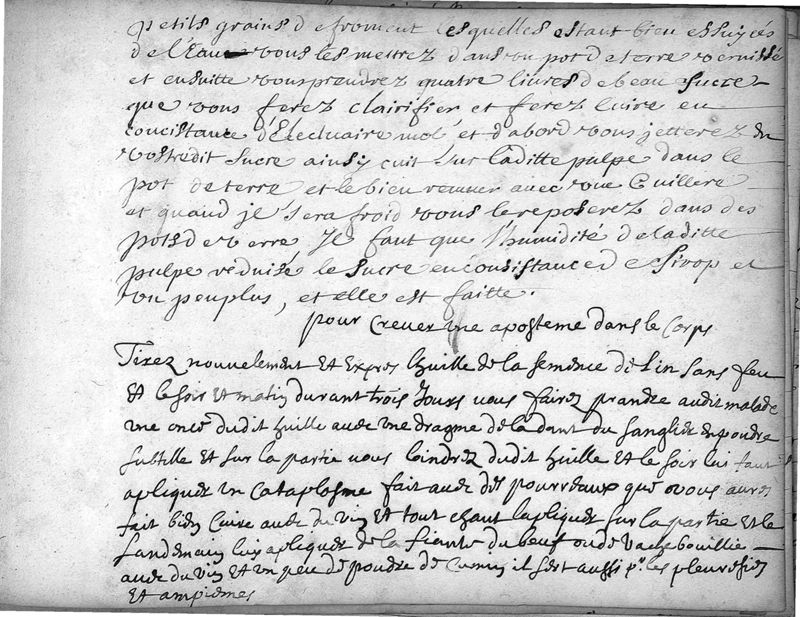 petits grains de froment lesquelles estant bien essuyées
de l'Eau vous les mettrez dans un pot de terre vernissé
et ensuitte vous prendrez quatre livres de beau sucre
que vous ferez clairifier et ferez cuire en
concistance d'Electuaire mol et d'abord vous jetterez du
vostredit sucre ainsy cuit sur laditte pulpe dans le
pot de terre et le bien remuer avec une Cuillere
et quand il sera froid vous le reposerez dans des
pots de verre, Il faut que l'humidité de laditte
pulpe reduise le sucre en consistance de Sirop et
un peu plus, et elle est faitte.
pour Crever une aposteme dans le Corps
Tirez nouvelement Et Expres lhuille de la semence de Lin sans feu
Et le soir Et matin durant trois Jours vous fairez prandre audit malade
une once dudit huille avec une dragme de la dant du sanglier en poudre
subtille Et sur la partie vous loindrez dudit huille Et le soir lui faut
apliquer un Cataplosme fait avec des pourreaux que vous aurez
fait bien Cuire avec du vin Et tout chaut lapliquer sur la partie Et le
Landemain luy apliquer de la fiante du beuf ou de vache bouillie
avec du vin Et un peu de poudre de Cumin il sert aussi pr. les pleuresies
Et ampiemes